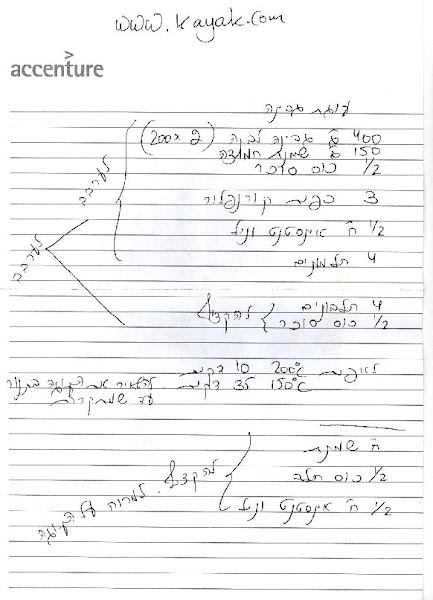 www.kayak.com
accenture
עוגת גבינה
400 ג' גבינה לבנה (2 x 200)
150 ג' שמנת חמוצה
1/2 כוס סוכר
3 כפות קורנפלור
1/2 ח' אינסטנט וניל
4 חלמונים
לערבב
4 חלבונים
1/2 כוס סוכר
להקציף
לערבב
לאפות 200°c 10 דקות
150°c 35 דקות. להשאיר את העוגה בתנור
עד שמתקררת
ח' שמנת
1/2 כוס חלב
1/2 ח' אינסטנט וניל
להקציף. למרוח על העוגה